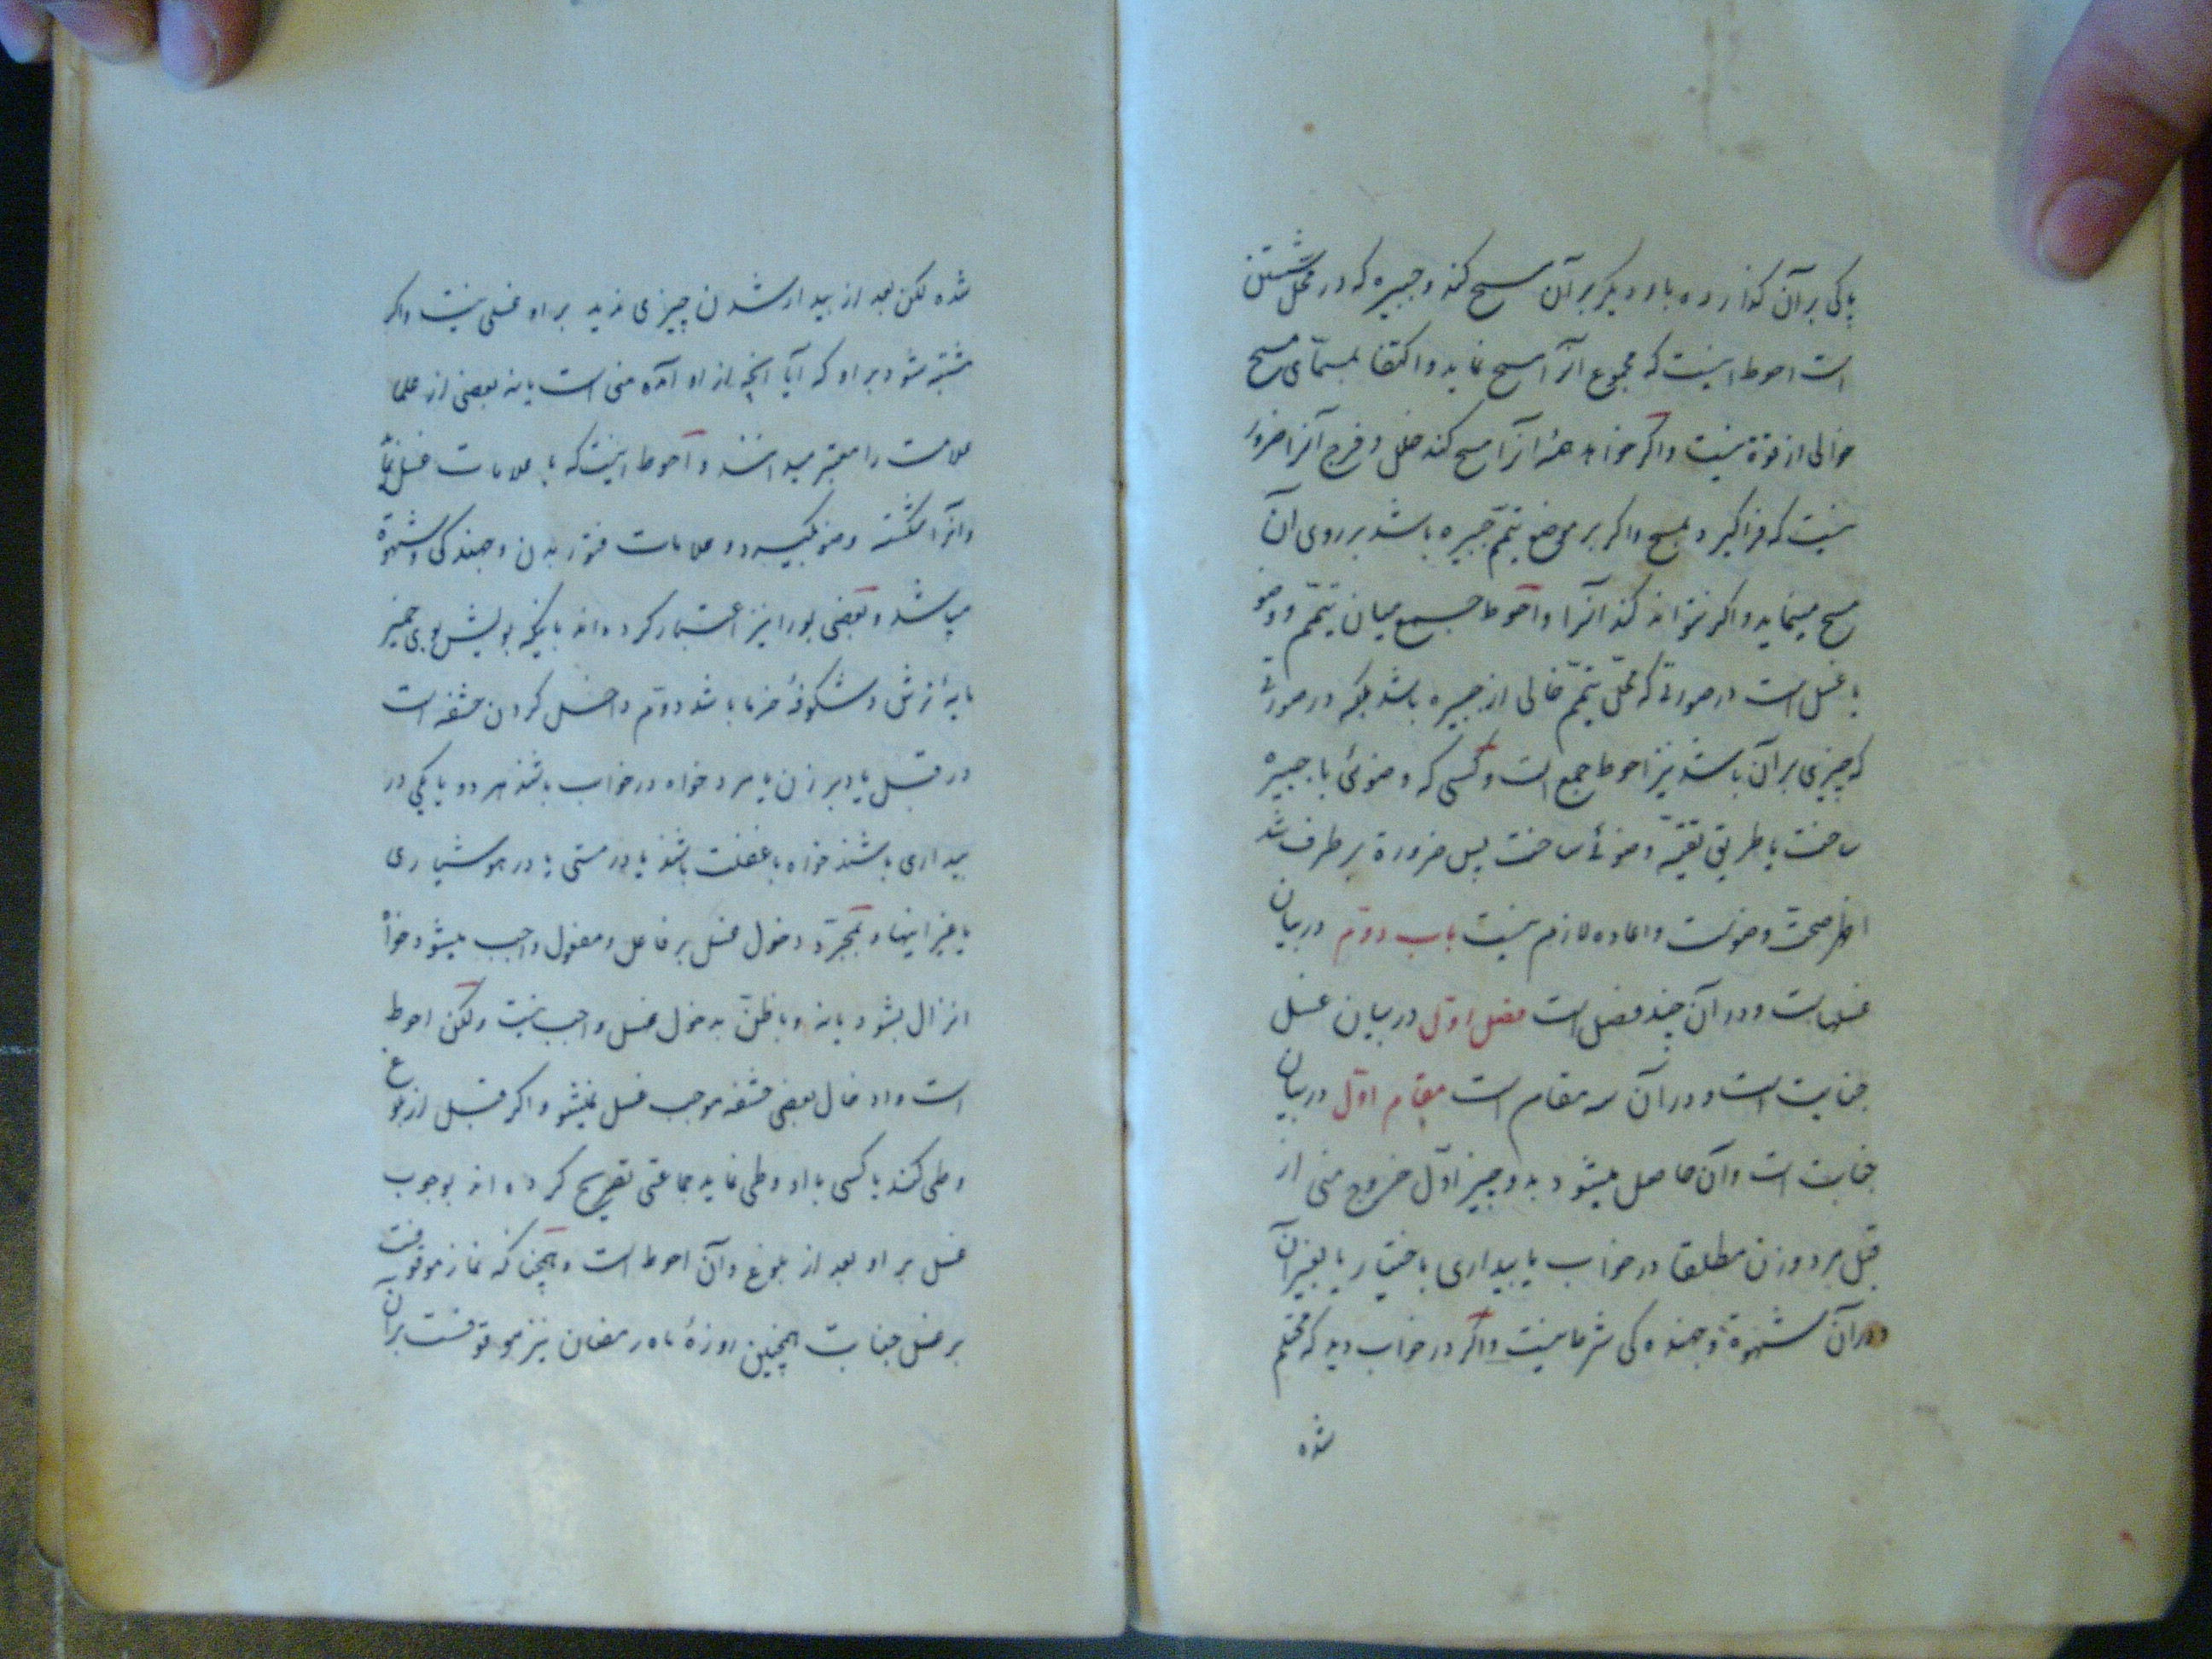 پاکی بر آن گذارده بار دیگر بر آن مسح کند و جبیره که در محل شستن
است احوط اینست که مجموع آنرا مسح نماید و اکتفا بمسمّای مسح
خالی از قوة نیست و اگر خواهد همهٔ آنرا مسح کند خلل و فرج آنرا ضرور
نیست که فراگیرد بمسح و اگر بر موضع تیمّم جبیره باشد بر روی آن
مسح مینماید و اگر نتواند کند آنرا و احوط جمع میان تیمّم و وضو
یا غسل است در صورتی که محلّ تیمّم خالی از جبیره باشد بلکه در صورتی
که چیزی بر آن باشد نیز احوط جمع است و کسی که وضوئی با جبیره
ساخت یا طریق تقیّه وضوئی ساخت پس ضرورة بر طرف شد
اظهر صحت وضوست و اعاده لازم نیست باب دوّم در بیان
غسلهاست و در آن چند فصل است فصل اوّل در بیان غسل
جنابت است و در آن سه مقام است مقام اوّل در بیان
جنابت است و آن حاصل میشود بدو چیز اوّل خروج منی از
قبل مرد و زن مطلقا در خواب یا بیداری باختیار یا بغیر آن
و در آن شهوة و جهندگی شرط نیست و اگر در خواب دید که محتلم
شده
شده لکن بعد از بیدار شدن چیزی ندید بر او غسلی نیست و اگر
مشتبه شود بر او که آیا آنچه از او آمده منی است یا نه بعضی از علما
علامت را معتبر میدانند و احوط اینست که با علامات غسل نماید
و آنرا شکسته وضو بگیرد و علامات فتور بدن و جهندگی و شهوة
میباشد و بعضی بو را نیز اعتبار کرده اند باینکه بویش بوی خمیر
مایهٔ ترش و شکوفهٔ خرما باشد دوّم داخل کردن حشفه است
در قبل یا دبر زن یا مرد خواه در خواب باشند هر دو یا یکی در
بیداری باشند خواه با غفلت باشند یا در مستی یا در هوشیاری
یا غیر اینها و بمجرّد دخول غسل بر فاعل و مفعول واجب میشود خواه
انزال بشود یا نه و با ظنّ بدخول غسل واجب نیست و لکن احوط
است و ادخال بعضی حشفه موجب غسل نمیشود و اگر قبل از بلوغ
وطی کند یا کسی با او وطی نماید جماعتی تصریح کرده اند بوجوب
غسل بر او بعد از بلوغ و آن احوط است و همچنانکه نماز موقوفست
بر غسل جنابت همچنین روزهٔ ماه رمضان نیز موقوفست بر آن